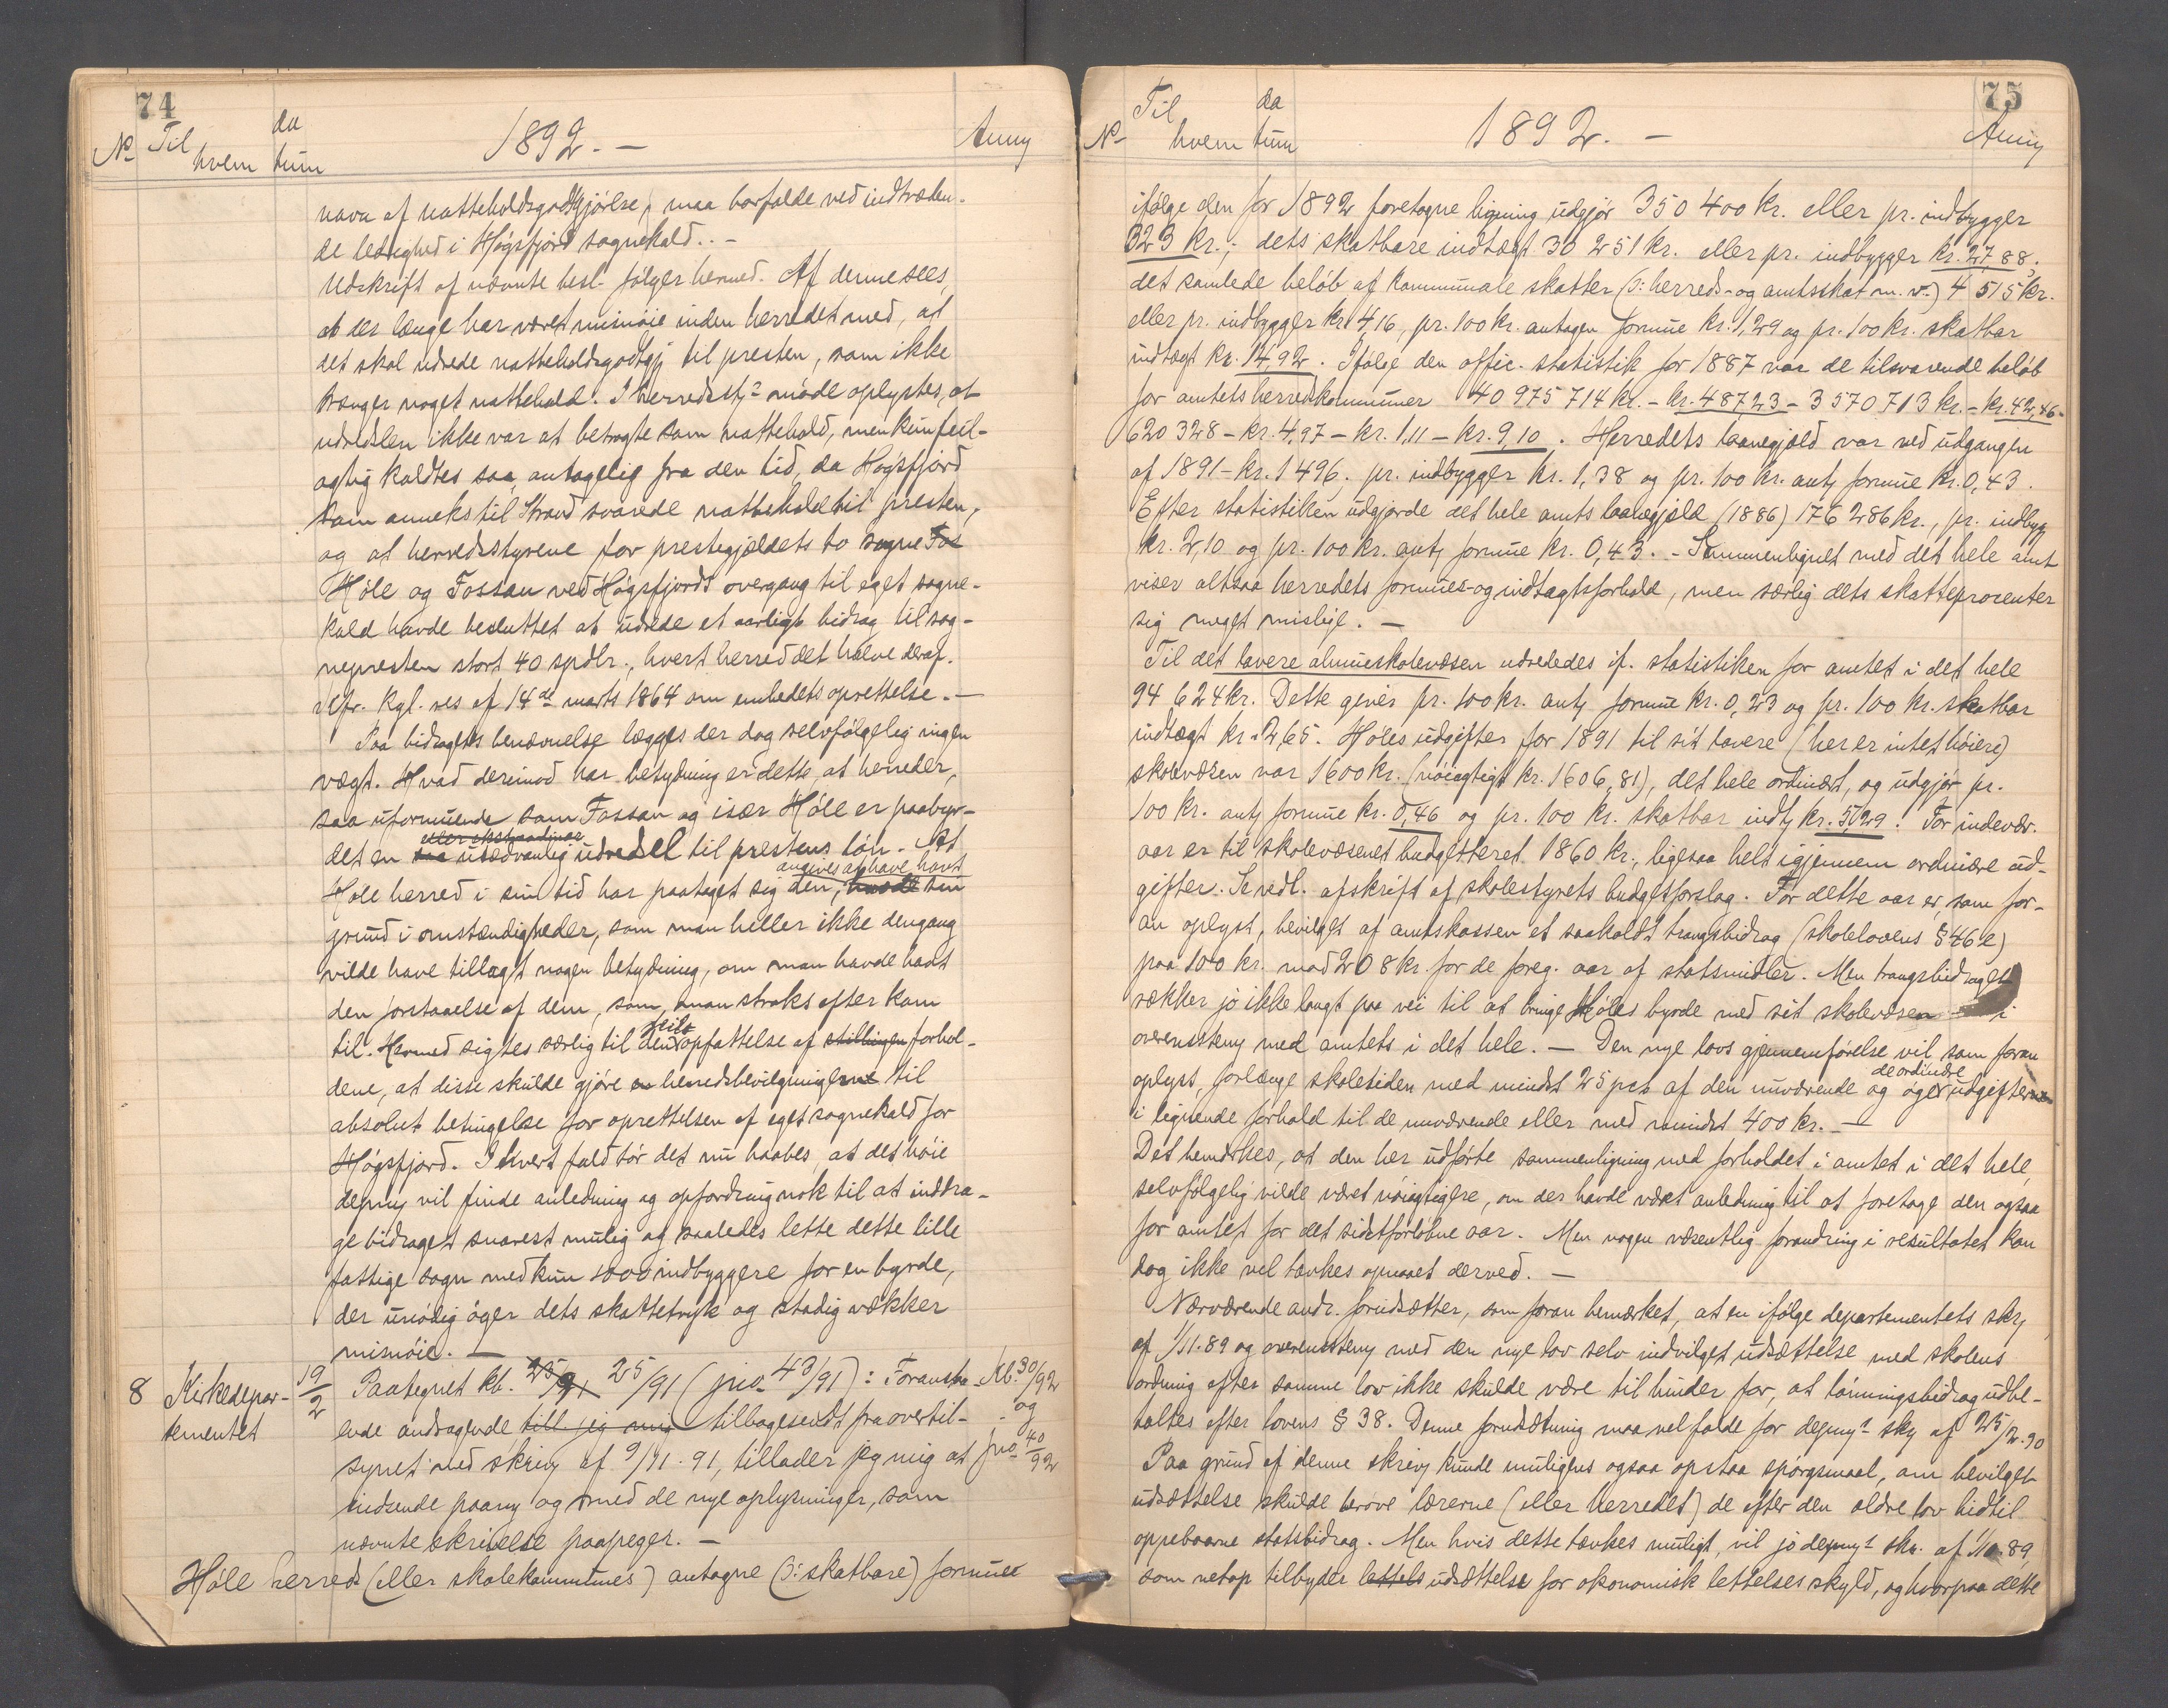 74
No Til hvem da tum 1892. — Anmkn
navn af natteholdsgodtgjörelse, maa bortfalde ved indtræden-
de ledighed i Högsfjord sognekald. . —
Udskrift af nævnte besl. fölger hermed. Af denne sees,
at der længe har været misnöie inden herredet med, at
det skal udrede natteholdsgodtgj til presten, som ikke
trænger noget nattehold. I herredsstys möde oplystes, at
udredslen ikke var at betragte som nattehold, men kun feil-
agtig kaldtes saa, antagelig fra den tid, da Högsfjord
som anneks til Strand svarede nattehold til presten,
og at herredsstyrene for prestegjældets to sogne Fos
Höle og Fossan ved Högsfjords overgang til eget sogne-
kald havde besluttet at udrede et aarligt bidrag til sog-
nepresten stort 40 spdlr., hvert herred det halve deraf.
cfr. kgl. res af 14de marts 1864 om embedets oprettelse. —
Paa bidragets benævnelse lægges der dog selvfölgelig ingen
vægt. Hvad derimod har betydning er dette, at herreder,
saa uformuende som Fossan og især Höle er paabyr-
eller ekstraordinær
det en saa usædvanlig udredsel til prestens lön. At
angives at have havt
Höle herred i sin tid har paataget sig den, havde sin
grund i omstændigheder, som man heller ikke dengang
vilde have tillagt nogen betydning, om man havde havt
den forstaaelse af dem, som man straks efter kom
feil
til. Hermed sigtes særlig til den opfattelse af stillingen forhol-
dene, at disse skulde gjöre en herredsbevilgningerne til
absolut betingelse for oprettelsen af eget sognekald for
Högsfjord. I hvert fald tör det nu haabes, at det höie
depmy vil finde anledning og opfordring nok til at inddra-
ge bidraget snarest mulig og saaledes lette dette lille
fattige sogn med kun 1000 indbyggere for en byrde,
der unödig öger dets skattetryk og stadig vækker
misnöie. —
8 Kirkedepar-tementet 19/2 Paategnet kb. 25/91 25/91 (jno 43/91): Foranstaa- Kb. 30/92
ende andragende till jeg mig tilbagesendt fra overtil- og
synet med skriv af 9/11.91, tillader jeg mig at jno 40/92
indsende paany og med de nye oplysninger, som
nævnte skrivelse paapeger. —
Höle herred (eller skolekommunes) antagne (ɔ: skatbare) formue
75
No Til hvem da tum 1892. — Anmkn
ifölge den for 1892 foretagne ligning udgjör 350 400 kr. eller pr. indbygger
323 kr.; dets skatbare indtægt 30 251 kr. eller pr. indbygger kr. 27,88;
det samlede belöb af kommunale skatter (ɔ: herreds- og amtsskat m. v.) 4 515 kr.
eller pr. indbygger kr 4,16, pr. 100 kr. antagen formue kr. 1,29 og pr. 100 kr. skatbar
indtægt kr. 14,92. Ifölge den offic. statistik for 1887 var de tilsvarende belöb
for amtets herredskommuner 40 975 714 kr. – kr. 487,23 – 3 570 713 kr. – kr. 42,46 –
620 328 – kr. 4,97 – kr. 1,11 – kr. 9,10. Herredets laanegjæld var ved udgangen
af 1891 – kr. 1 496, pr. indbygger kr. 1,38 og pr. 100 kr. antg formue kr. 0,43.
Efter statistiken udgjorde det hele amts laanegjæld (1886) 176 286 kr., pr. indbyg
kr. 2,10 og pr. 100 kr. antg formue kr. 0,43. – Sammenlignet med det hele amt
viser altsaa herredets formues- og indtægtsforhold, men særlig dets skatteprocenter
sig meget mislige. —
Til det lavere almueskolevæsen udrededes if. statistiken for amtet i det hele
94 624 kr. Dette giver pr. 100 kr. antg formue kr. 0,23 og pr. 100 kr. skatbar
indtægt kr. 2,65. Höles udgifter for 1891 til sit lavere (her er intet höiere)
skolevæsen var 1600 kr. (nöiagtigt kr. 1606,81), det hele ordinært, og udgjör pr.
100 kr. antg formue kr. 0,46 og pr. 100 kr. skatbar indtg kr. 5,29. For indevær.
aar er til skolevæsenet budgetteret 1860 kr., ligesaa helt igjennem ordinære ud-
gifter. Se vedl. afskrift af skolestyrets budgetforslag. For dette aar er, som for-
an oplyst, bevilget af amtskassen et saakaldt trangsbidrag (skolelovens § 46 e)
paa 100 kr. mod 208 kr. for de foreg. aar af statsmidler. Men trangsbidraget
rækker jo ikke langt paa vei til at bringe Höles byrde med sit skolevæsen i
overensstemg med amtets i det hele. — Den nye lovs gjennemförelse vil, som foran
de ordinære
oplyst, forlænge skoletiden med mindst 25 pct af den nuværende og öger udgifterne
i lignende forhold til de nuværende eller med mindst 400 kr. —
Det bemærkes, at den her udförte sammenligning med forholdet i amtet i det hele,
selvfölgelig vilde været nöiagtigere, om der havde været anledning til at foretage den ogsaa
for amtet for det sidstforlöbne aar. Men nogen væsentlig forandring i resultatet kan
dog ikke vel tænkes opnaaet derved. —
Nærværende andr. forudsætter, som foran bemærket, at en ifölge departementets skr
af 1/11.89 og overensstemg med den nye lov selv indvilget udsættelse med skolens
ordning efter samme lov ikke skulde være til hinder for, at lönningsbidrag udbe-
taltes efter lovens § 38. Denne forudsætning maa vel falde for depmyts skr af 25/2.90
Paa grund af denne skriv kunde muligens ogsaa opstaa spörgsmaal, om bevilget
udsættelse skulde beröve lærerne (eller herredet) de efter den ældre lov hidtil
oppebaarne statsbidrag. Men hvis dette tænkes muligt, vil jo depmyts skr. af 1/11 89,
som netop tilbyder lettels udsættelse for ökonomisk lettelses skyld, og hvorpaa dette